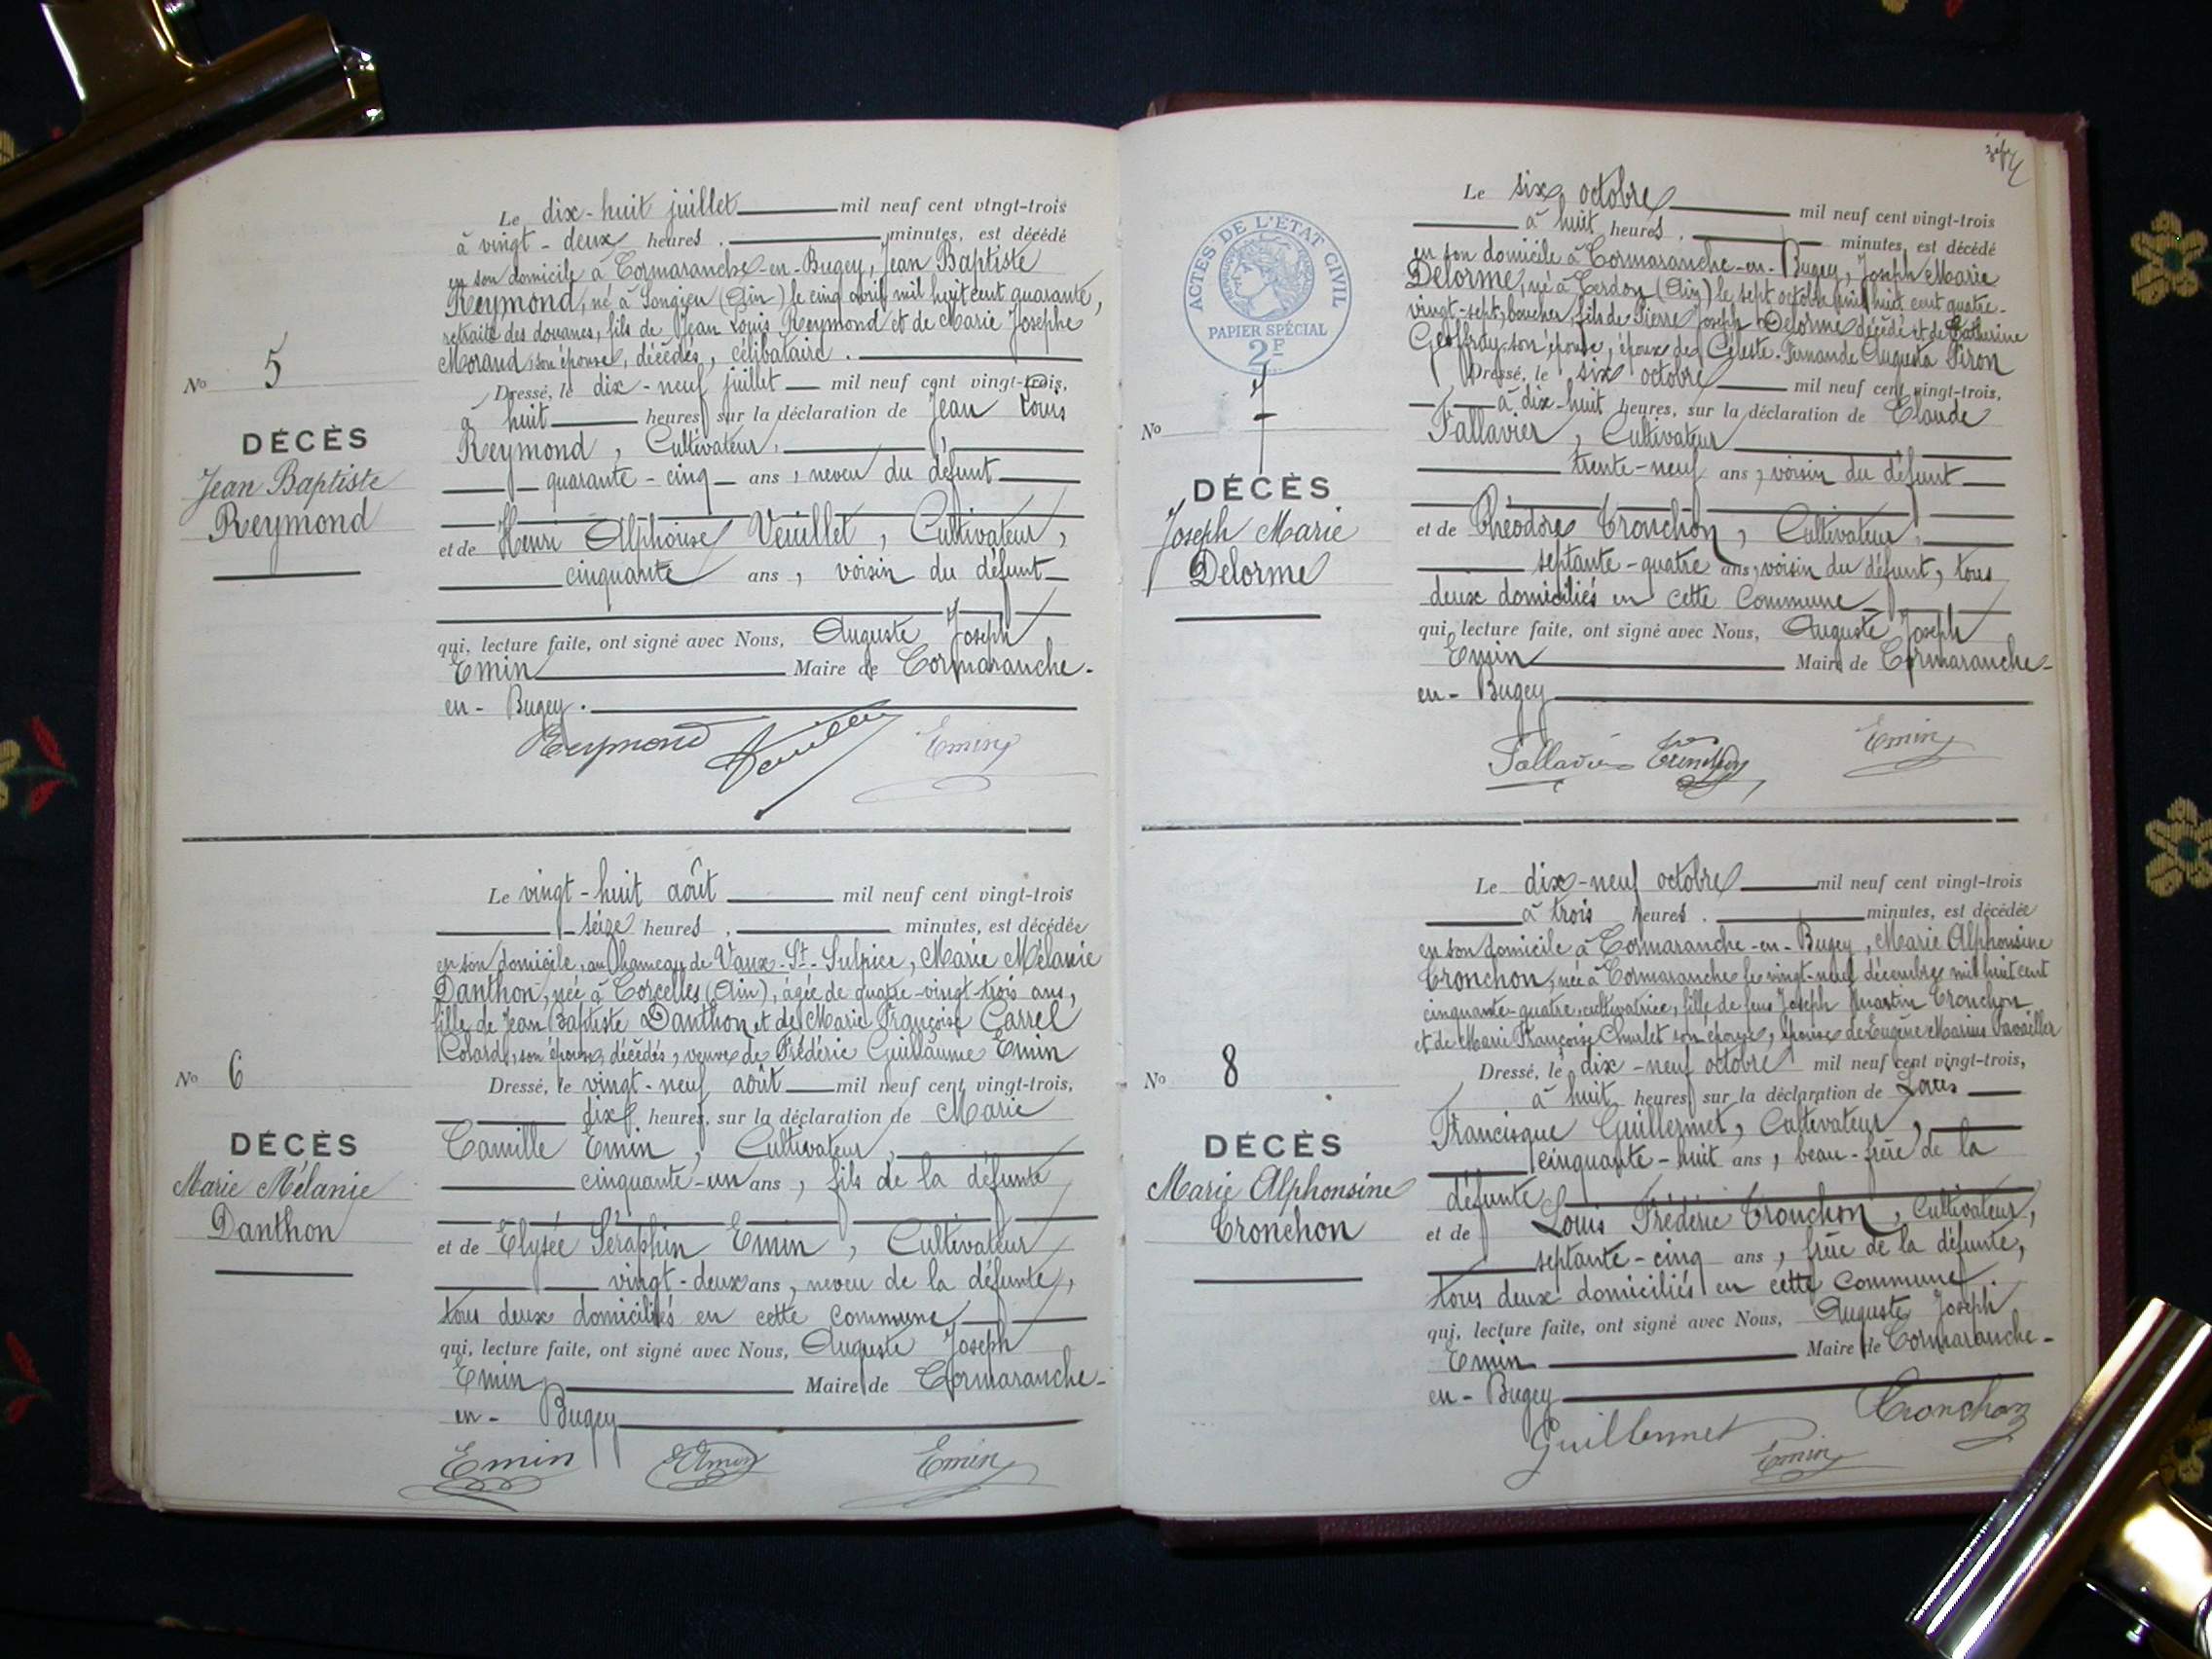 Le dix-huit juillet mil neuf cent vingt-trois
à vingt-deux heures, minutes, est décédé
en son domicile à Cormaranche-en-Bugey, Jean Baptiste
Reymond, né à Songieu (Ain) le cinq avril mil huit cent quarante,
retraité des douanes, fils de Jean Louis Reymond et de Marie Josephe
Morand son épouse, décédés, célibataire.
Dressé, le dix-neuf juillet mil neuf cent vingt-trois,
à huit heures, sur la déclaration de Jean Louis
Reymond, Cultivateur,
quarante-cinq ans, neveu du défunt
et de Henri Alphonse Veuillet, Cultivateur,
cinquante ans, voisin du défunt
qui, lecture faite, ont signé avec Nous, Auguste Joseph
Emin Maire de Cormaranche-
en-Bugey.
Reymond Veuillet Emin
No 5
DÉCÈS
Jean Baptiste
Reymond
Le vingt-huit août mil neuf cent vingt-trois
seize heures, minutes, est décédée
en son domicile, au hameau de Vaux-St-Sulpice, Marie Mélanie
Danthon, née à Corcelles (Ain), âgée de quatre-vingt-trois ans,
fille de Jean Baptiste Danthon et de Marie Françoise Carrel
Colard, son épouse, décédés, veuve de Frédéric Guillaume Emin
Dressé, le vingt-neuf août mil neuf cent vingt-trois,
dix heures, sur la déclaration de Marie
Camille Emin, Cultivateur,
cinquante-un ans, fils de la défunte
et de Elysée Séraphin Emin, Cultivateur
vingt-deux ans, neveu de la défunte,
tous deux domiciliés en cette commune
qui, lecture faite, ont signé avec Nous, Auguste Joseph
Emin Maire de Cormaranche-
en-Bugey
Emin Emin Emin
No 6
DÉCÈS
Marie Mélanie
Danthon
ACTES DE L'ÉTAT CIVIL
PAPIER SPÉCIAL
2F
Le six octobre mil neuf cent vingt-trois
à huit heures, minutes, est décédé
en son domicile à Cormaranche-en-Bugey, Joseph Marie
Delorme, né à Cerdon (Ain) le sept octobre mil huit cent quatre-
vingt-sept, boucher, fils de Pierre Joseph Delorme décédé et de Catherine
Geoffray son épouse, époux de Céleste Fernande Augusta Piron
Dressé, le six octobre mil neuf cent vingt-trois,
à dix-huit heures, sur la déclaration de Claude
Fallavier, Cultivateur
trente-neuf ans, voisin du défunt
et de Théodore Tronchon, Cultivateur,
septante-quatre ans, voisin du défunt, tous
deux domiciliés en cette Commune
qui, lecture faite, ont signé avec Nous, Auguste Joseph
Emin Maire de Cormaranche-
en-Bugey
Fallavier Tronchon Emin
No 7
DÉCÈS
Joseph Marie
Delorme
Le dix-neuf octobre mil neuf cent vingt-trois
à trois heures, minutes, est décédée
en son domicile à Cormaranche-en-Bugey, Marie Alphonsine
Tronchon, née à Cormaranche le vingt-neuf décembre mil huit cent
cinquante-quatre, cultivatrice, fille de feus Joseph Martin Tronchon
et de Marie Françoise Churlet son épouse, épouse de Eugène Marius Savailler
Dressé, le dix-neuf octobre mil neuf cent vingt-trois,
à huit heures, sur la déclaration de Louis
Francisque Guillermet, Cultivateur,
cinquante-huit ans, beau-frère de la
défunte
et de Louis Frédéric Tronchon, Cultivateur,
septante-cinq ans, frère de la défunte,
tous deux domiciliés en cette commune
qui, lecture faite, ont signé avec Nous, Auguste Joseph
Emin Maire de Cormaranche-
en-Bugey
Guillermet Emin Tronchon
No 8
DÉCÈS
Marie Alphonsine
Tronchon